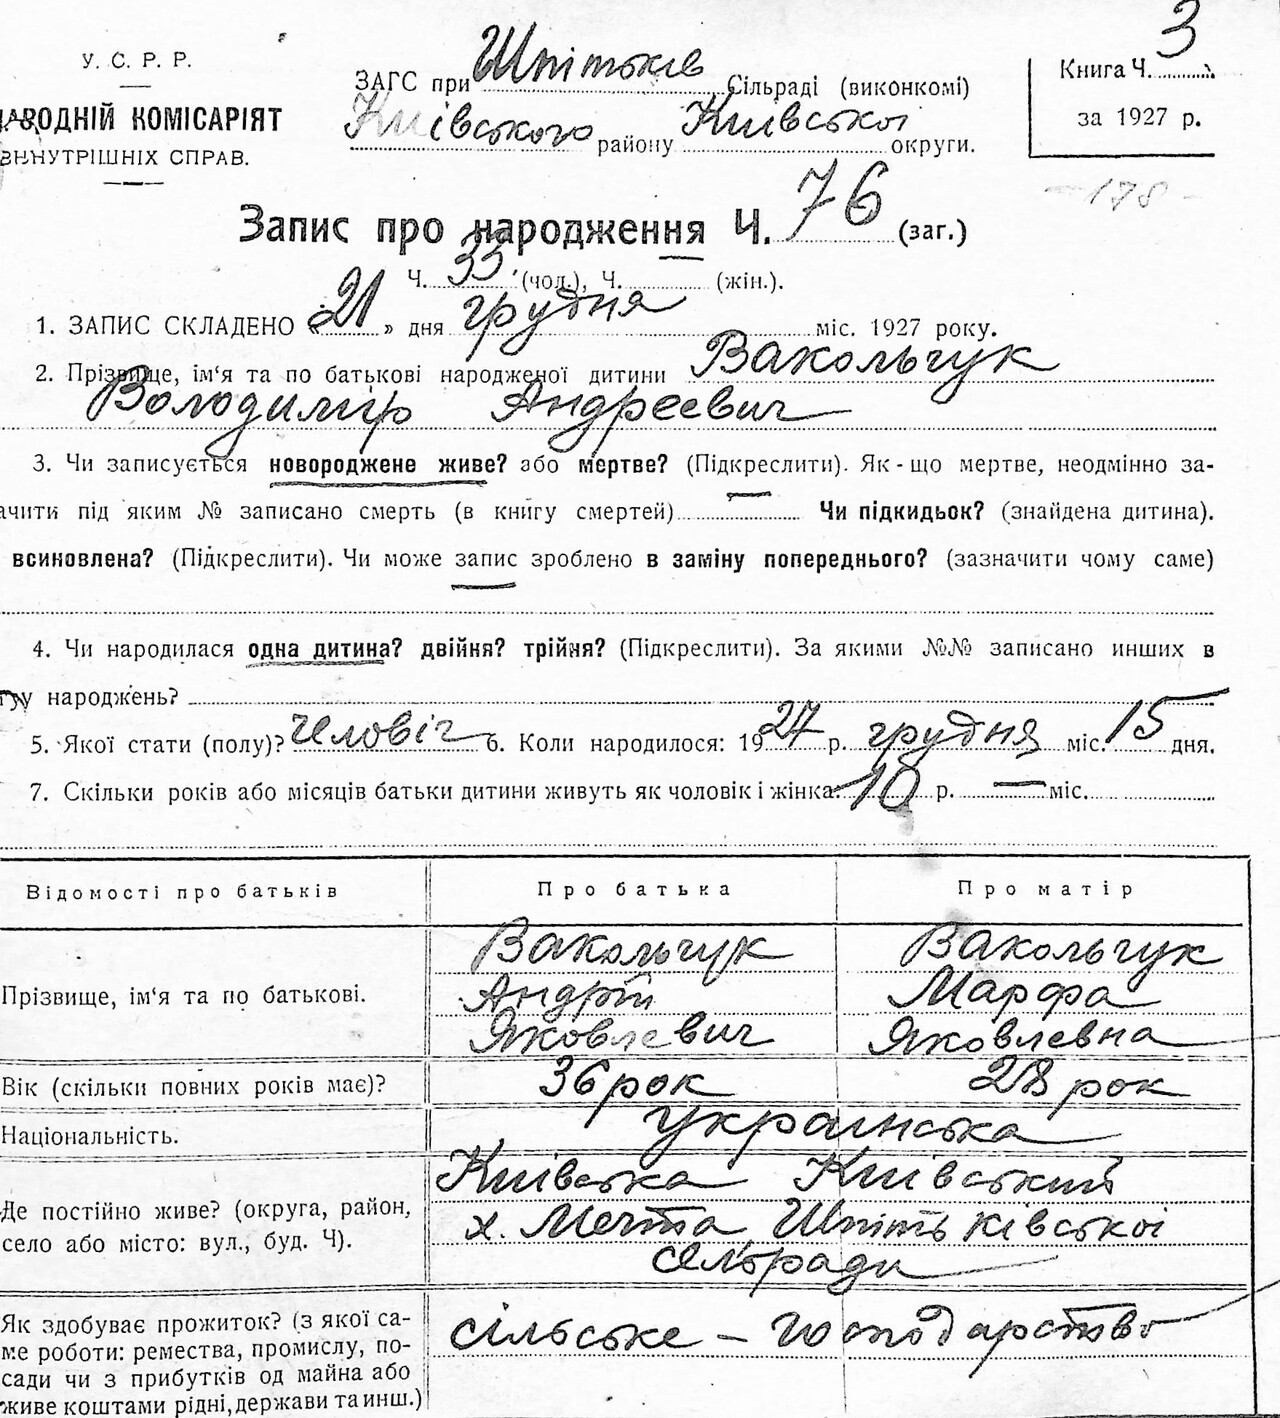 У. С. Р. Р.
НАРОДНІЙ КОМІСАРІЯТ
ВНУТРІШНІХ СПРАВ.
ЗАГС при Шпітьків Сільраді (виконкомі)
Київського району Київської округи.
Книга Ч. 3
за 1927 р.
- 178 -
Запис про народження Ч. 76 (заг.)
Ч. 33 (чол.), Ч. (жін.).
1. ЗАПИС СКЛАДЕНО «21» дня грудня міс. 1927 року.
2. Прізвище, ім‘я та по батькові народженої дитини Вакольчук
Володимир Андреевич
3. Чи записується новороджене живе? або мертве? (Підкреслити). Як-що мертве, неодмінно за-
ачити під яким № записано смерть (в книгу смертей) — Чи підкидьок? (знайдена дитина).
всиновлена? (Підкреслити). Чи може запис зроблено в заміну попереднього? (зазначити чому саме)
4. Чи народилася одна дитина? двійня? трійня? (Підкреслити). За якими №№ записано инших в
гу народжень?
5. Якої стати (полу)? Человіч 6. Коли народилося: 1927 р. грудня міс. 15 дня.
7. Скільки років або місяців батьки дитини живуть як чоловік і жінка 10 р. — міс.
Відомості про батьків Про батька Про матір
Прізвище, ім‘я та по батькові.
Вакольчук Андрій Яковлевич
Вакольчук Марфа Яковлевна
Вік (скільки повних років має)? 36 рок 28 рок
Національність. українська
Де постійно живе? (округа, район,
село або місто: вул., буд. Ч).
Київська Київський
х. Мечта Шпітьківської
сельради
Як здобуває прожиток? (з якої са-
ме роботи: ремества, промислу, по-
сади чи з прибутків од майна або
живе коштами рідні, держави та инш.)
сільське – господарство